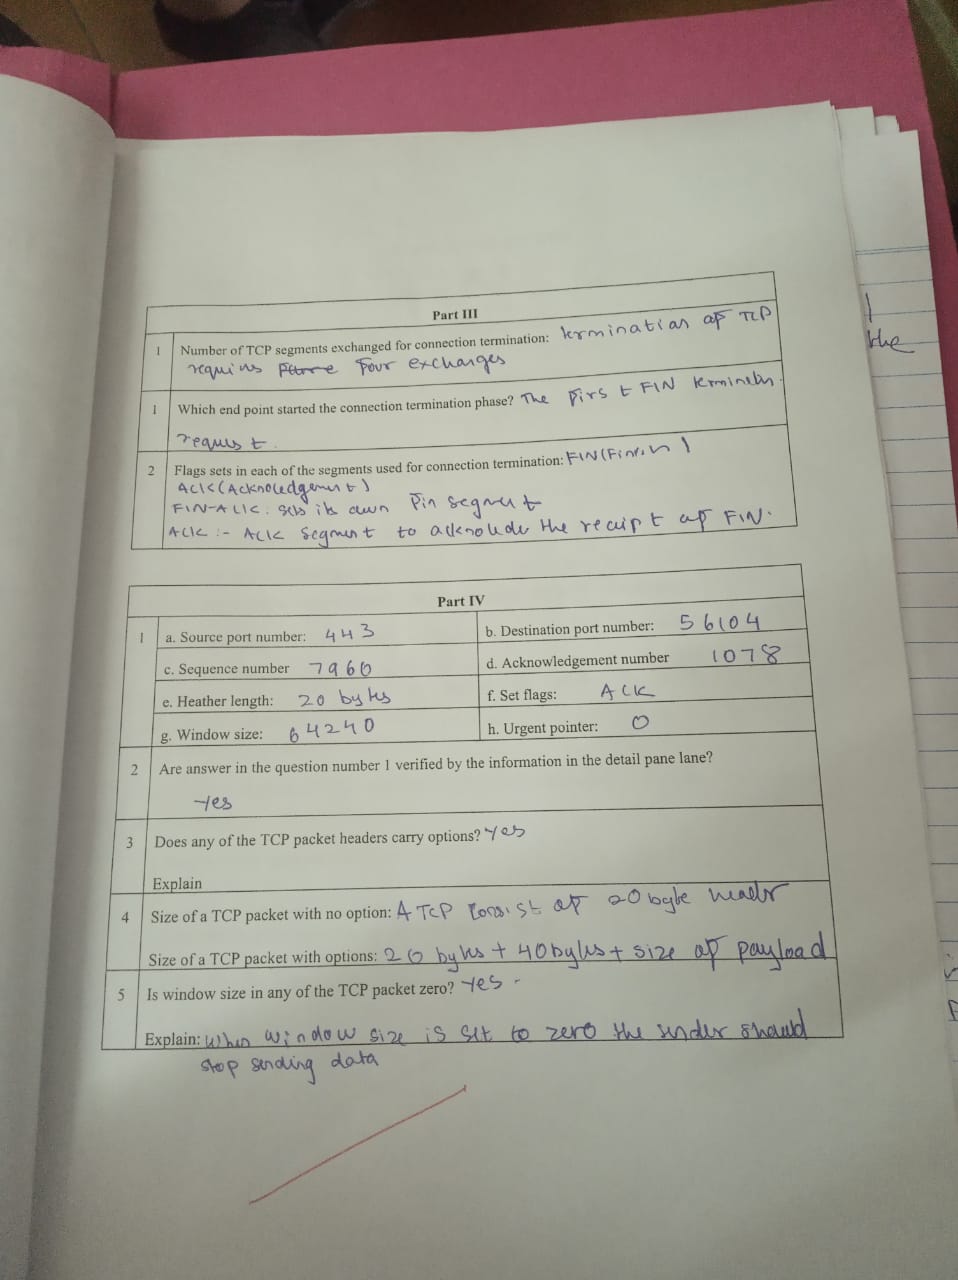 Part III
1 Number of TCP segments exchanged for connection termination: termination of TCP
requires four exchanges
1 Which end point started the connection termination phase? The first FIN
request.
2 Flags sets in each of the segments used for connection termination: FIN(Finish)
ACK(Acknoledgement)
FIN-ACK: sets its own Fin segment
ACK :- ACK segment to the recipt of FIN.
Part IV
1 a. Source port number: 443 b. Destination port number: 56104
c. Sequence number 7960 d. Acknowledgement number 1078
e. Heather length: 20 bytes f. Set flags: ACK
g. Window size: 64240 h. Urgent pointer: 0
2 Are answer in the question number 1 verified by the information in the detail pane lane?
Yes
3 Does any of the TCP packet headers carry options? Yes
Explain
4 Size of a TCP packet with no option: A TCP consist of 20 byte header
Size of a TCP packet with options: 20 bytes + 40 bytes + size of payload
5 Is window size in any of the TCP packet zero? Yes.
Explain: When window size is set to zero the sender should
stop sending data
the